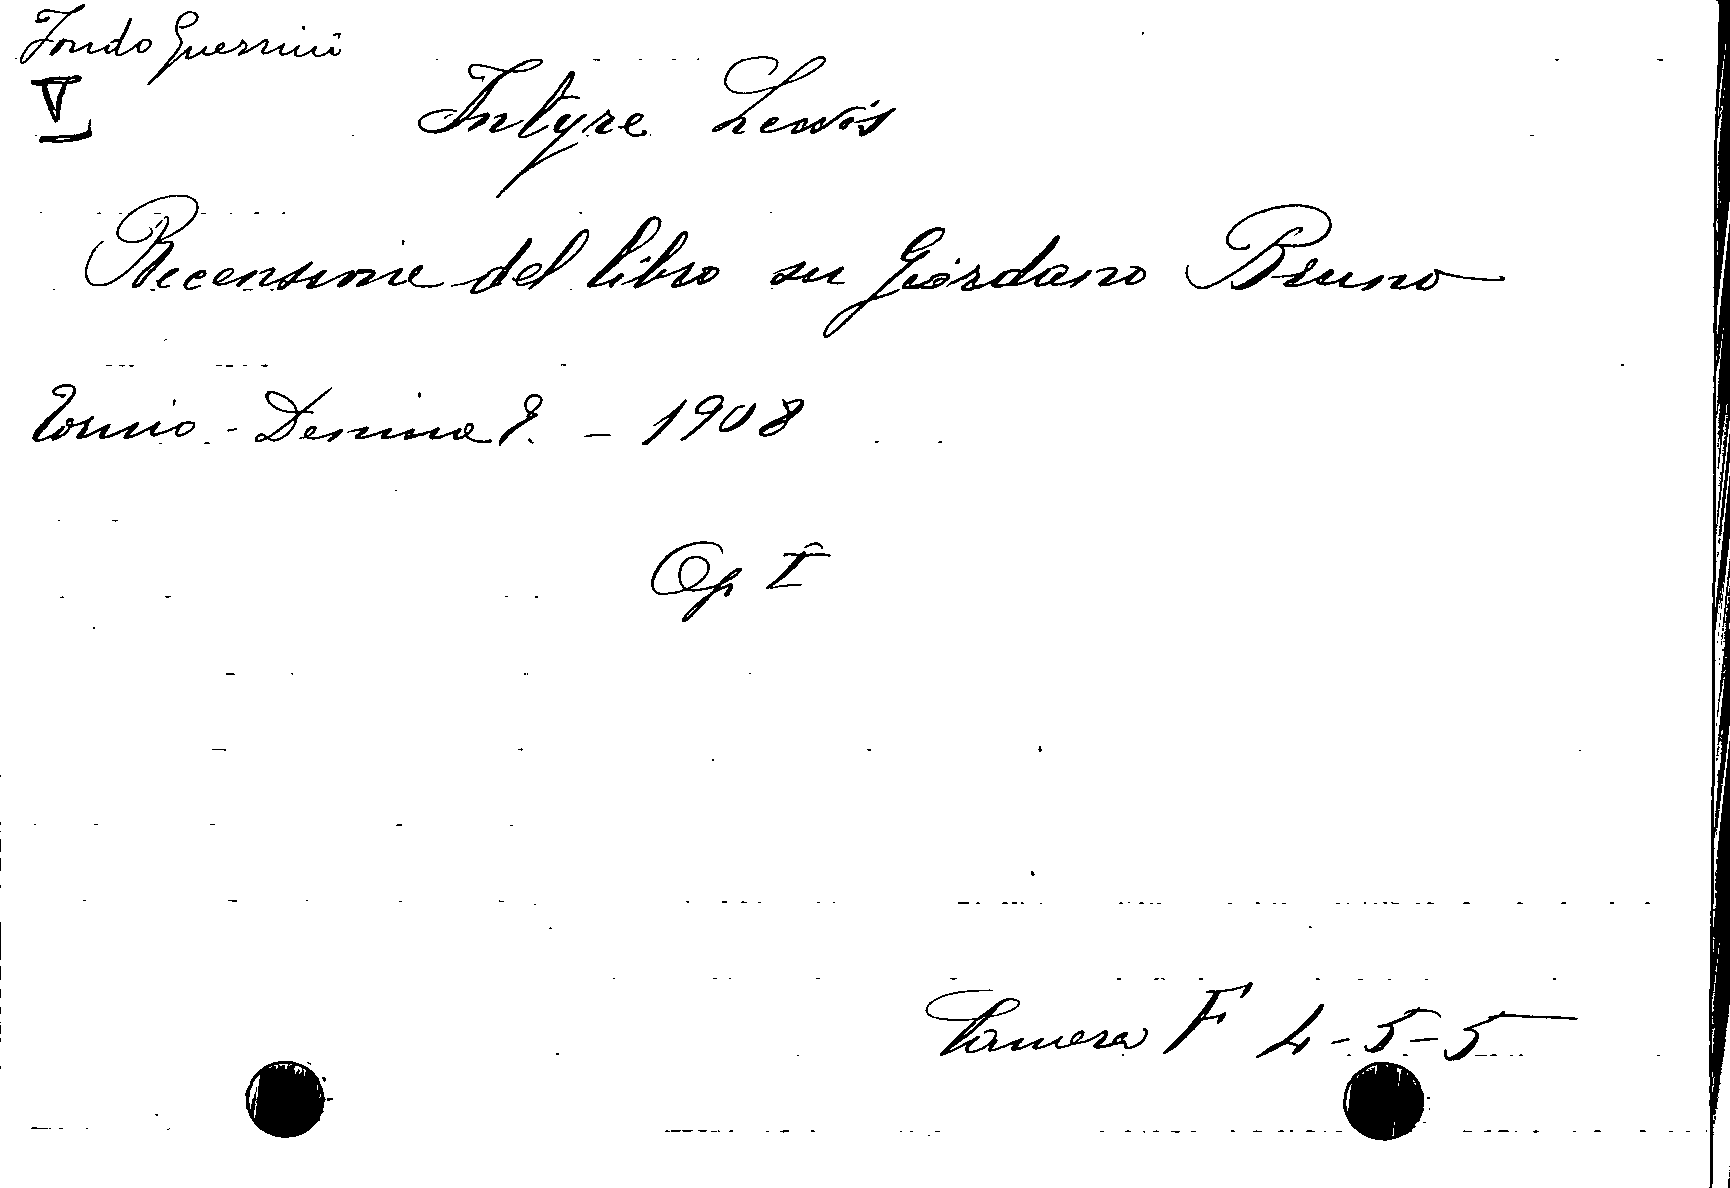 Fondo Guerrini
V
Intyre Lewis
Recensione del libro su Giordano Bruno
Torino - Denina E. - 1908
Op I
Camera F 4-5-5